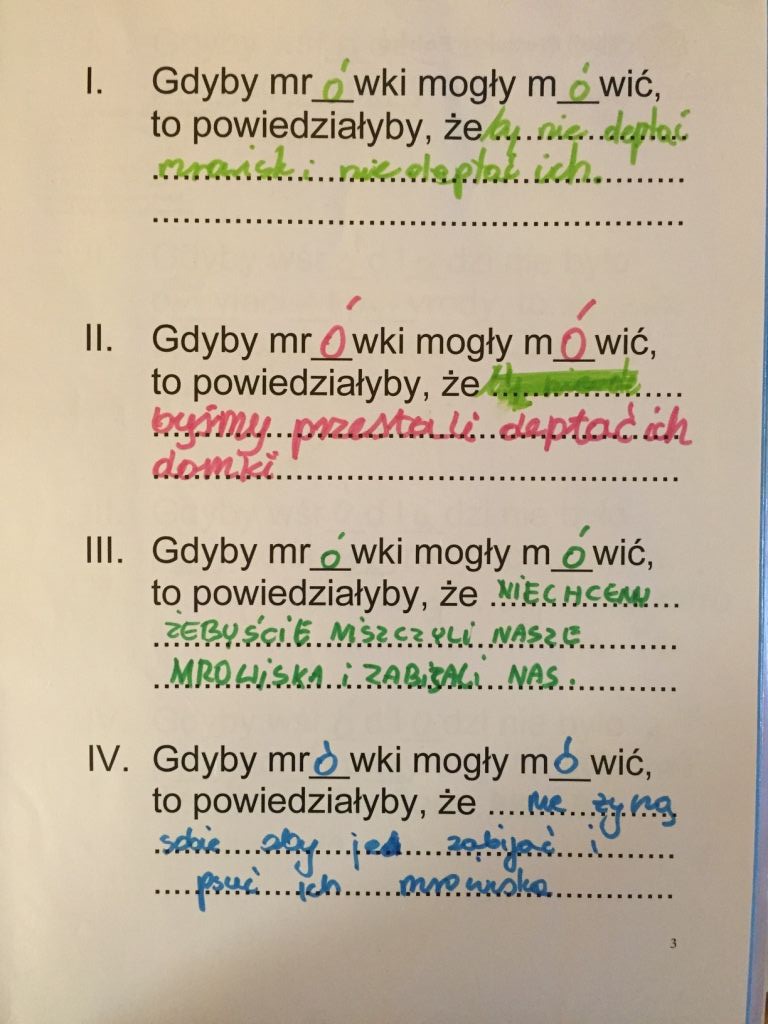 I. Gdyby mrówki mogły mówić,
to powiedziałyby, że by nie deptać
mrowisk i nie deptać ich.
II. Gdyby mrÓwki mogły mÓwić,
to powiedziałyby, że
byśmy przestali deptać ich
domki
III. Gdyby mrówki mogły mówić,
to powiedziałyby, że NIECHCEMY
ŻEBYŚCIE NISZCZYLI NASZE
MROWISKA i ZABIJALI NAS.
IV. Gdyby mrówki mogły mówić,
to powiedziałyby, że nie życzą
sobie aby je zabijać i
psuć ich mrowiska
3